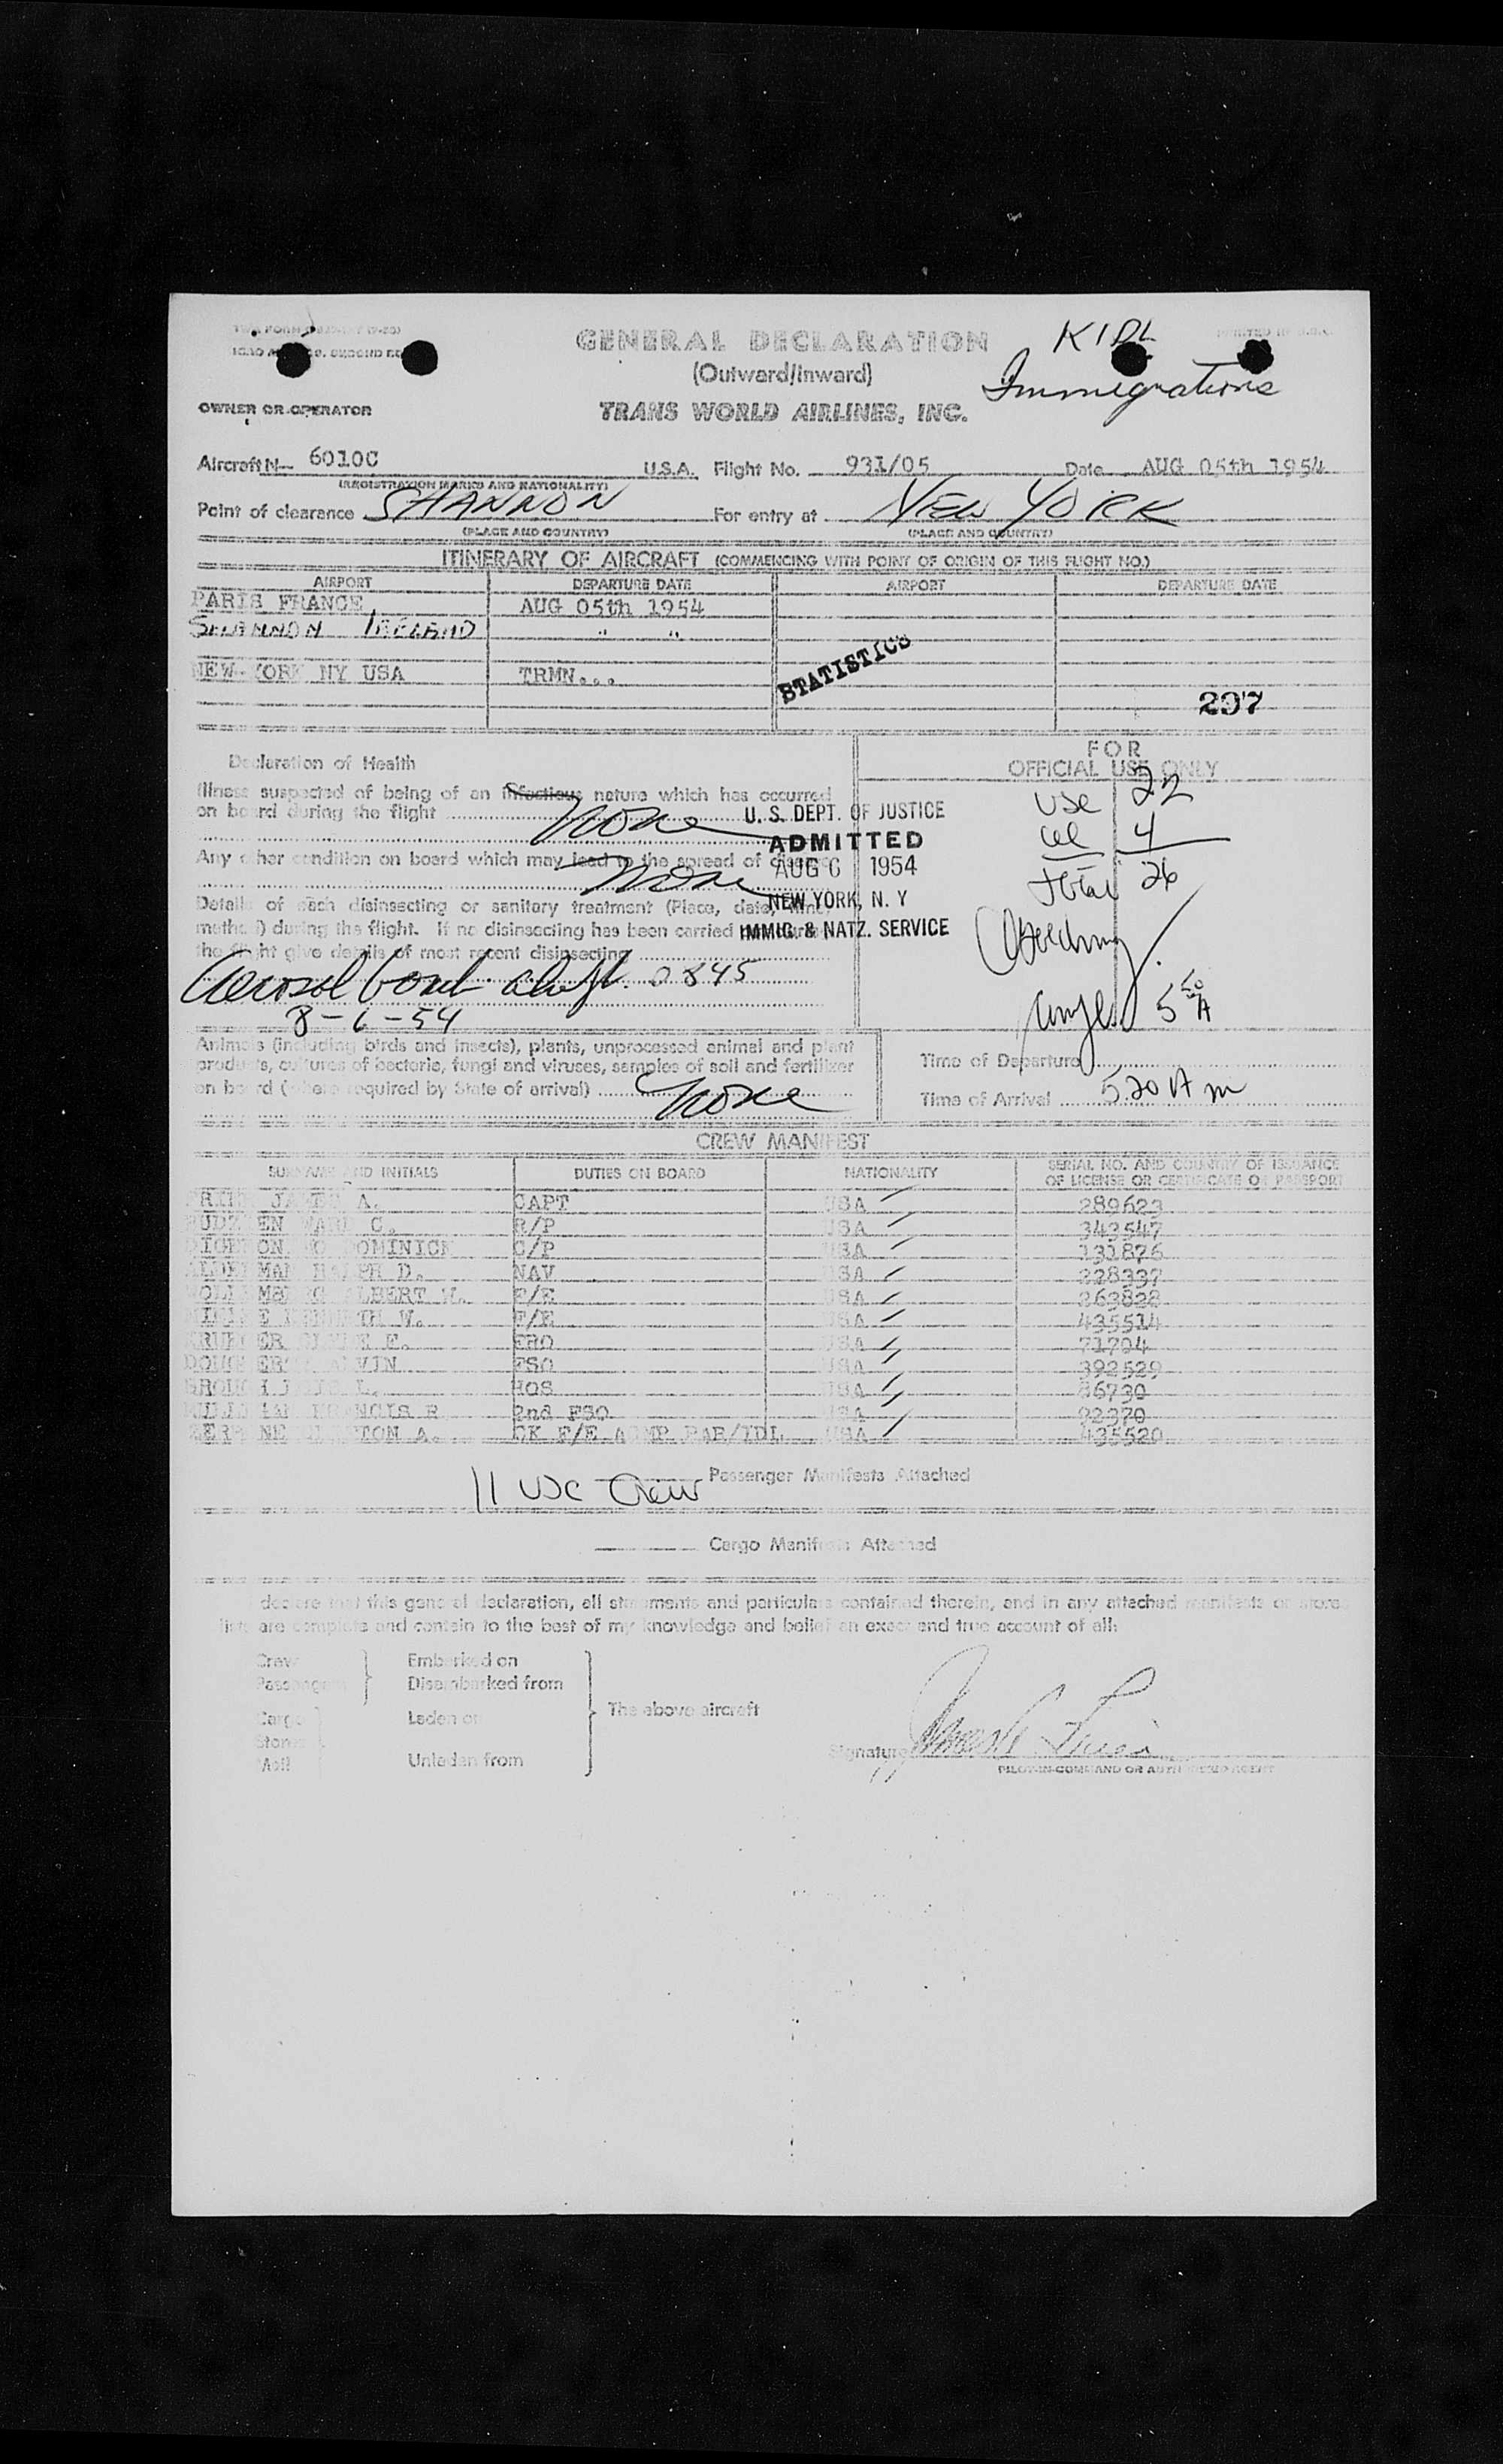 GENERAL DECLARATION
(Outward/Inward)
KIDL
Immigrations
OWNER OR OPERATOR
TRANS WORLD AIRLINES, INC.
Aircraft N- 6010C U.S.A. Flight No. 931/05 Date AUG 05th 1954
(REGISTRATION MARKS AND NATIONALITY)
Point of clearance SHANNON For entry at NEW YORK
(PLACE AND COUNTRY) (PLACE AND COUNTRY)
ITINERARY OF AIRCRAFT (COMMENCING WITH POINT OF ORIGIN OF THIS FLIGHT NO.)
AIRPORT DEPARTURE DATE AIRPORT DEPARTURE DATE
PARIS FRANCE AUG 05th 1954
SHANNON IRELAND " "
NEW YORK NY USA TRMN...
STATISTICS
297
Declaration of Health
FOR
OFFICIAL USE ONLY
Illness suspected of being of an infectious nature which has occurred
on board during the flight None
USC 22
4
Total 26
U. S. DEPT. OF JUSTICE
ADMITTED
AUG 6 1954
NEW YORK, N. Y
IMMIG. & NATZ. SERVICE
Any other condition on board which may lead to the spread of disease
None
Details of each disinsecting or sanitary treatment (Place, date, time,
method) during the flight. If no disinsecting has been carried
the flight give details of most recent disinsecting
Aerosol bomb 0845
8-6-54
5 50 A
Animals (including birds and insects), plants, unprocessed animal and plant
products, cultures of bacteria, fungi and viruses, samples of soil and fertilizer
on board (where required by State of arrival) None
Time of Departure
Time of Arrival 5 20 A m
CREW MANIFEST
SURNAME AND INITIALS DUTIES ON BOARD NATIONALITY SERIAL NO. AND COUNTRY OF ISSUANCE
OF LICENSE OR CERTIFICATE OR PASSPORT
JAMES A. CAPT USA 289623
C. R/P USA 343547
DOMINICK C/P USA 131876
RALPH D. NAV USA 228337
ALBERT W. F/E USA 263828
KENNETH W. F/E USA 435514
KRUEGER E. FRO USA 71704
FSO USA 392529
L. HOS USA 86730
FRANCIS 2nd FSO USA 92370
A. CK F/E PAR/IDL USA 435520
11 USC Crew Passenger Manifests Attached
Cargo Manifests Attached
declare that this general declaration, all statements and particulars contained therein, and in any attached manifests or stores
lists are complete and contain to the best of my knowledge and belief an exact and true account of all:
Crew
Passengers
Embarked on
Disembarked from
Cargo
Stores
Mail
Laden on
Unladen from
The above aircraft
Signature
PILOT-IN-COMMAND OR AUTHORIZED AGENT